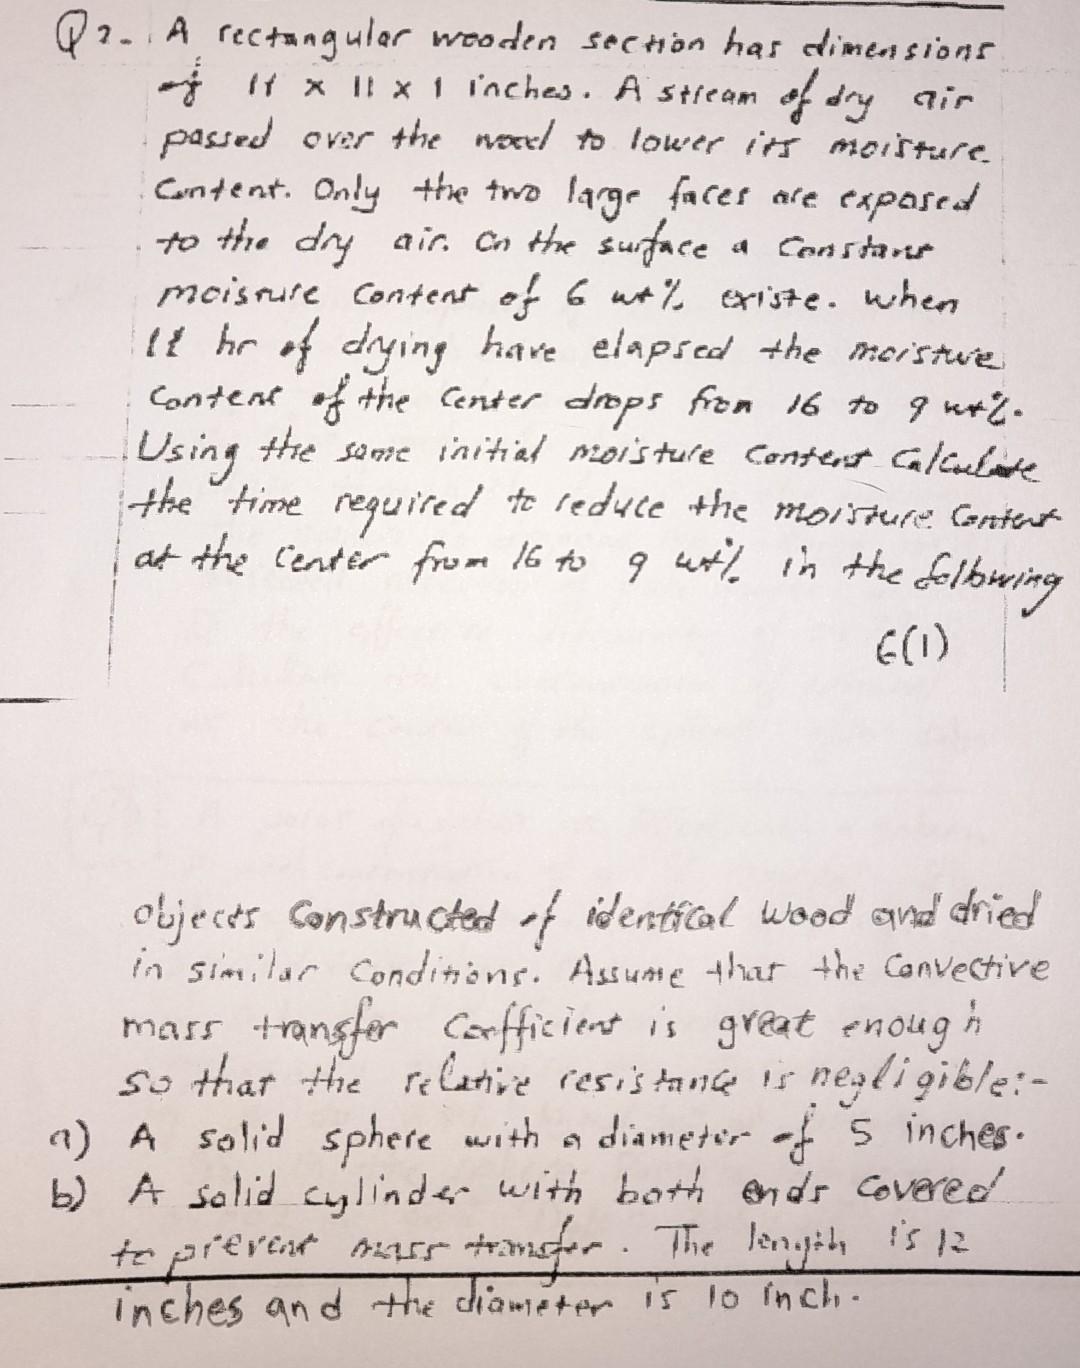 Q2. A rectangular wooden section has dimensions
of 11 x 11 x 1 inches. A stream of dry air
passed over the wood to lower its moisture
Content. Only the two large faces are exposed
to the dry air. On the surface a Constant
moisture Content of 6 wt% existe. when
11 hr of drying have elapsed the moisture
Content of the Center drops from 16 to 9 wt%.
Using the same initial moisture Content Calculate
the time required to reduce the moisture Content
at the Center from 16 to 9 wt% in the following
6(1)
objects Constructed of identical wood and dried
in similar Conditions. Assume that the Convective
mass transfer Coefficient is great enough
so that the relative resistance is negligible:-
a) A solid sphere with a diameter of 5 inches.
b) A solid cylinder with both ends Covered
to prevent mass transfer. The length is 12
inches and the diameter is 10 inch.